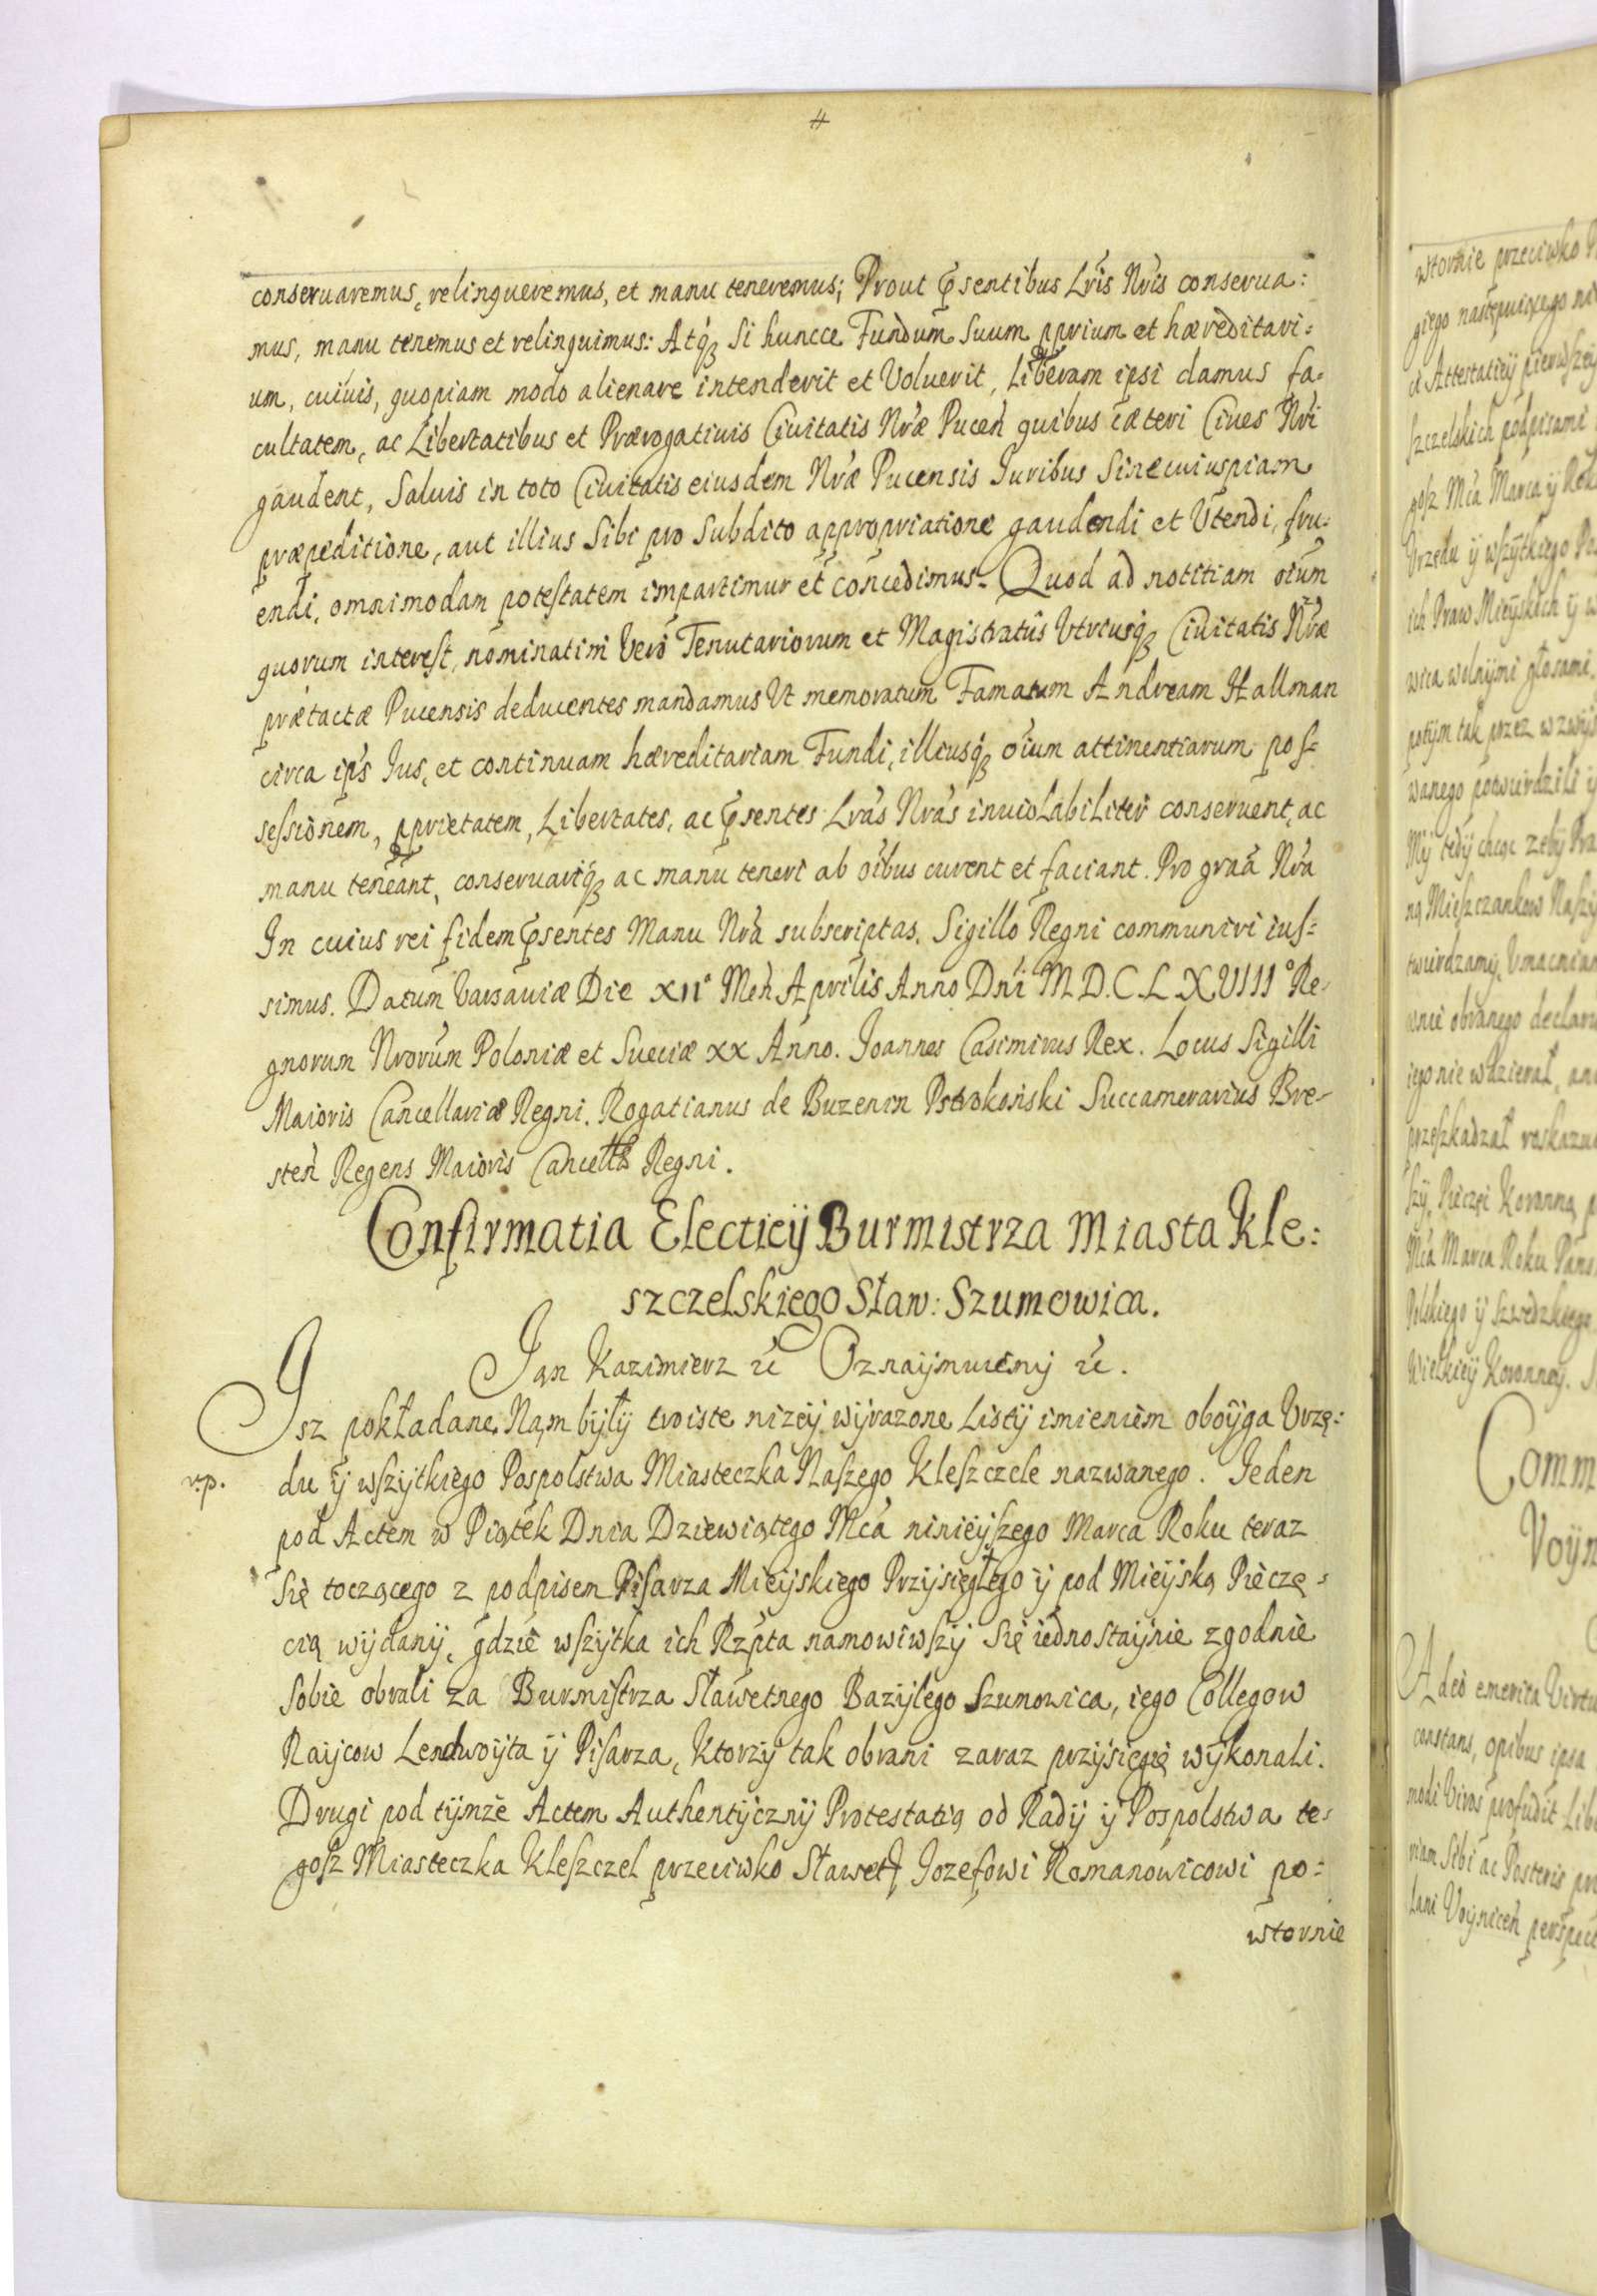 conseruaremus, relinqueremus, et manu teneremus; Prout Psentibus Lris Nris conserua:
mus, manu tenemus et relinquimus: Atq3 Si huncce Fundum Suum pprium et hæreditari:
um, cuiuis, quopiam modo alienare intenderit et Voluerit, Liberam ipsi damus fa-
cultatem, ac Libertatibus et Prærogatiuis Ciuitatis Nræ Puceń quibus cæteri Ciues Nri
gaudent, Saluis in toto Ciuitatis eiusdem Nræ Pucensis Iuribus Sine cuiuspiam
præpeditione, aut illius Sibi pro Subdito appropriatione gaudendi et Utendi, fru-
endi, omnimodam potestatem impartimur et concedimus. Quod ad notitiam oium
quorum interest, nominatim Vero Tenutariorum et Magistratûs Utriusq3 Ciuitatis Nræ
prætactæ Pucensis deducentes mandamus Ut memoratum Famatum Andream Hallman
circa ips Jus, et continuam hæreditariam Fundi, illiusq3 oium attinentiarum pos:
sessionem, pprietatem, Libertates, ac Psentes Lras Nras inuiolabiliter conseruent, ac
manu teneant, conseruariq3 ac manu teneri ab oibus curent et faciant. Pro graa Nra
In cuius rei fidem Psentes Manu Nra subscriptas. Sigillo Regni communiri ius:
simus. Datum Varsauiæ Die XII° Meń Aprilis Anno Dni M.D.C.L.XVIII° Re-
gnorum Nrorum Poloniæ et Sueciæ XX Anno. Joannes Casimirus Rex. Locus Sigilli
Maioris Cancellariæ Regni. Rogatianus de Buzenin Pstrokoński Succamerarius Bre-
steń Regens Maioris Regni.
Confirmatia Electieÿ Burmistrza Miasta Kle:
szczelskiego Sław: Szumowica.
Jan Kazimierz Oznaÿmuiemÿ
Isz pokładane Nam bÿłÿ troiste nizeÿ wÿrazone Listÿ imieniem oboÿga Vrzę:
v.p.
du ÿ wszÿtkiego Pospolstwa Miasteczka Naszego Kleszczele nazwanego. Jeden
pod Actem w Piątek Dnia Dziewiątego Mca ninieÿszego Marca Roku teraz
Się toczącego z podpisem Pisarza Mieÿskiego Przÿsięgłego ÿ pod Mieÿską Pieczę:
cią wÿdanÿ, gdzie wszÿtka ich Rzpta namowiwszÿ Się iednostaÿnie zgodnie
Sobie obrali za Burmistrza Sławetnego Bazÿlego Szumowica, iego Collegow
Raÿcow Lendwoÿta ÿ Pisarza, Ktorzÿ tak obrani zaraz przÿsięgę wÿkonali.
Drugi pod tÿmże Actem Authentÿcznÿ Protestatią od Radÿ ÿ Pospolstwa te:
gosz Miasteczka Kleszczel przeciwko Jozefowi Romanowicowi po:
wtornie
wtornie przeciwko
giego następuiącego
ci Attestatieÿ pierwszeÿ
szczelskich podpisami
gosz Mca Marca ÿ
Urzędu ÿ wszÿtkiego
ich Praw Mieÿskich ÿ
wica wolnÿmi głosami,
potÿm tak przez
wanego potwierdzili
Mÿ tedÿ chcąc zebÿ
Mieszczankow
twierdzamÿ,
obranego
iego nie wdzierał,
przeszkadzał
szÿ, Pieczęi Koronną
Mca Marca Roku Pans
Polskiego ÿ Szwedzkiego
Wielkieÿ Koronneÿ.
Comm
Voÿn
Adeo emerita Virtu
constans, opibus ipsa
modi Viros profudit
riam Sibi ac Posteris
Voÿniceń